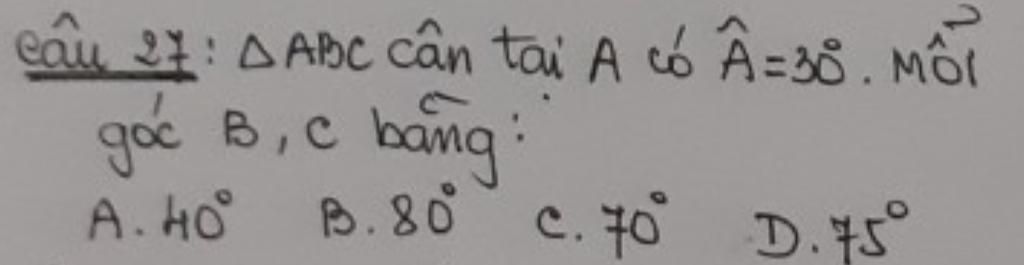 Câu 27: △ABC cân tại A có Â=30°. Mỗi
góc B, C bằng:
A. 40° B. 80° C. 70° D. 75°